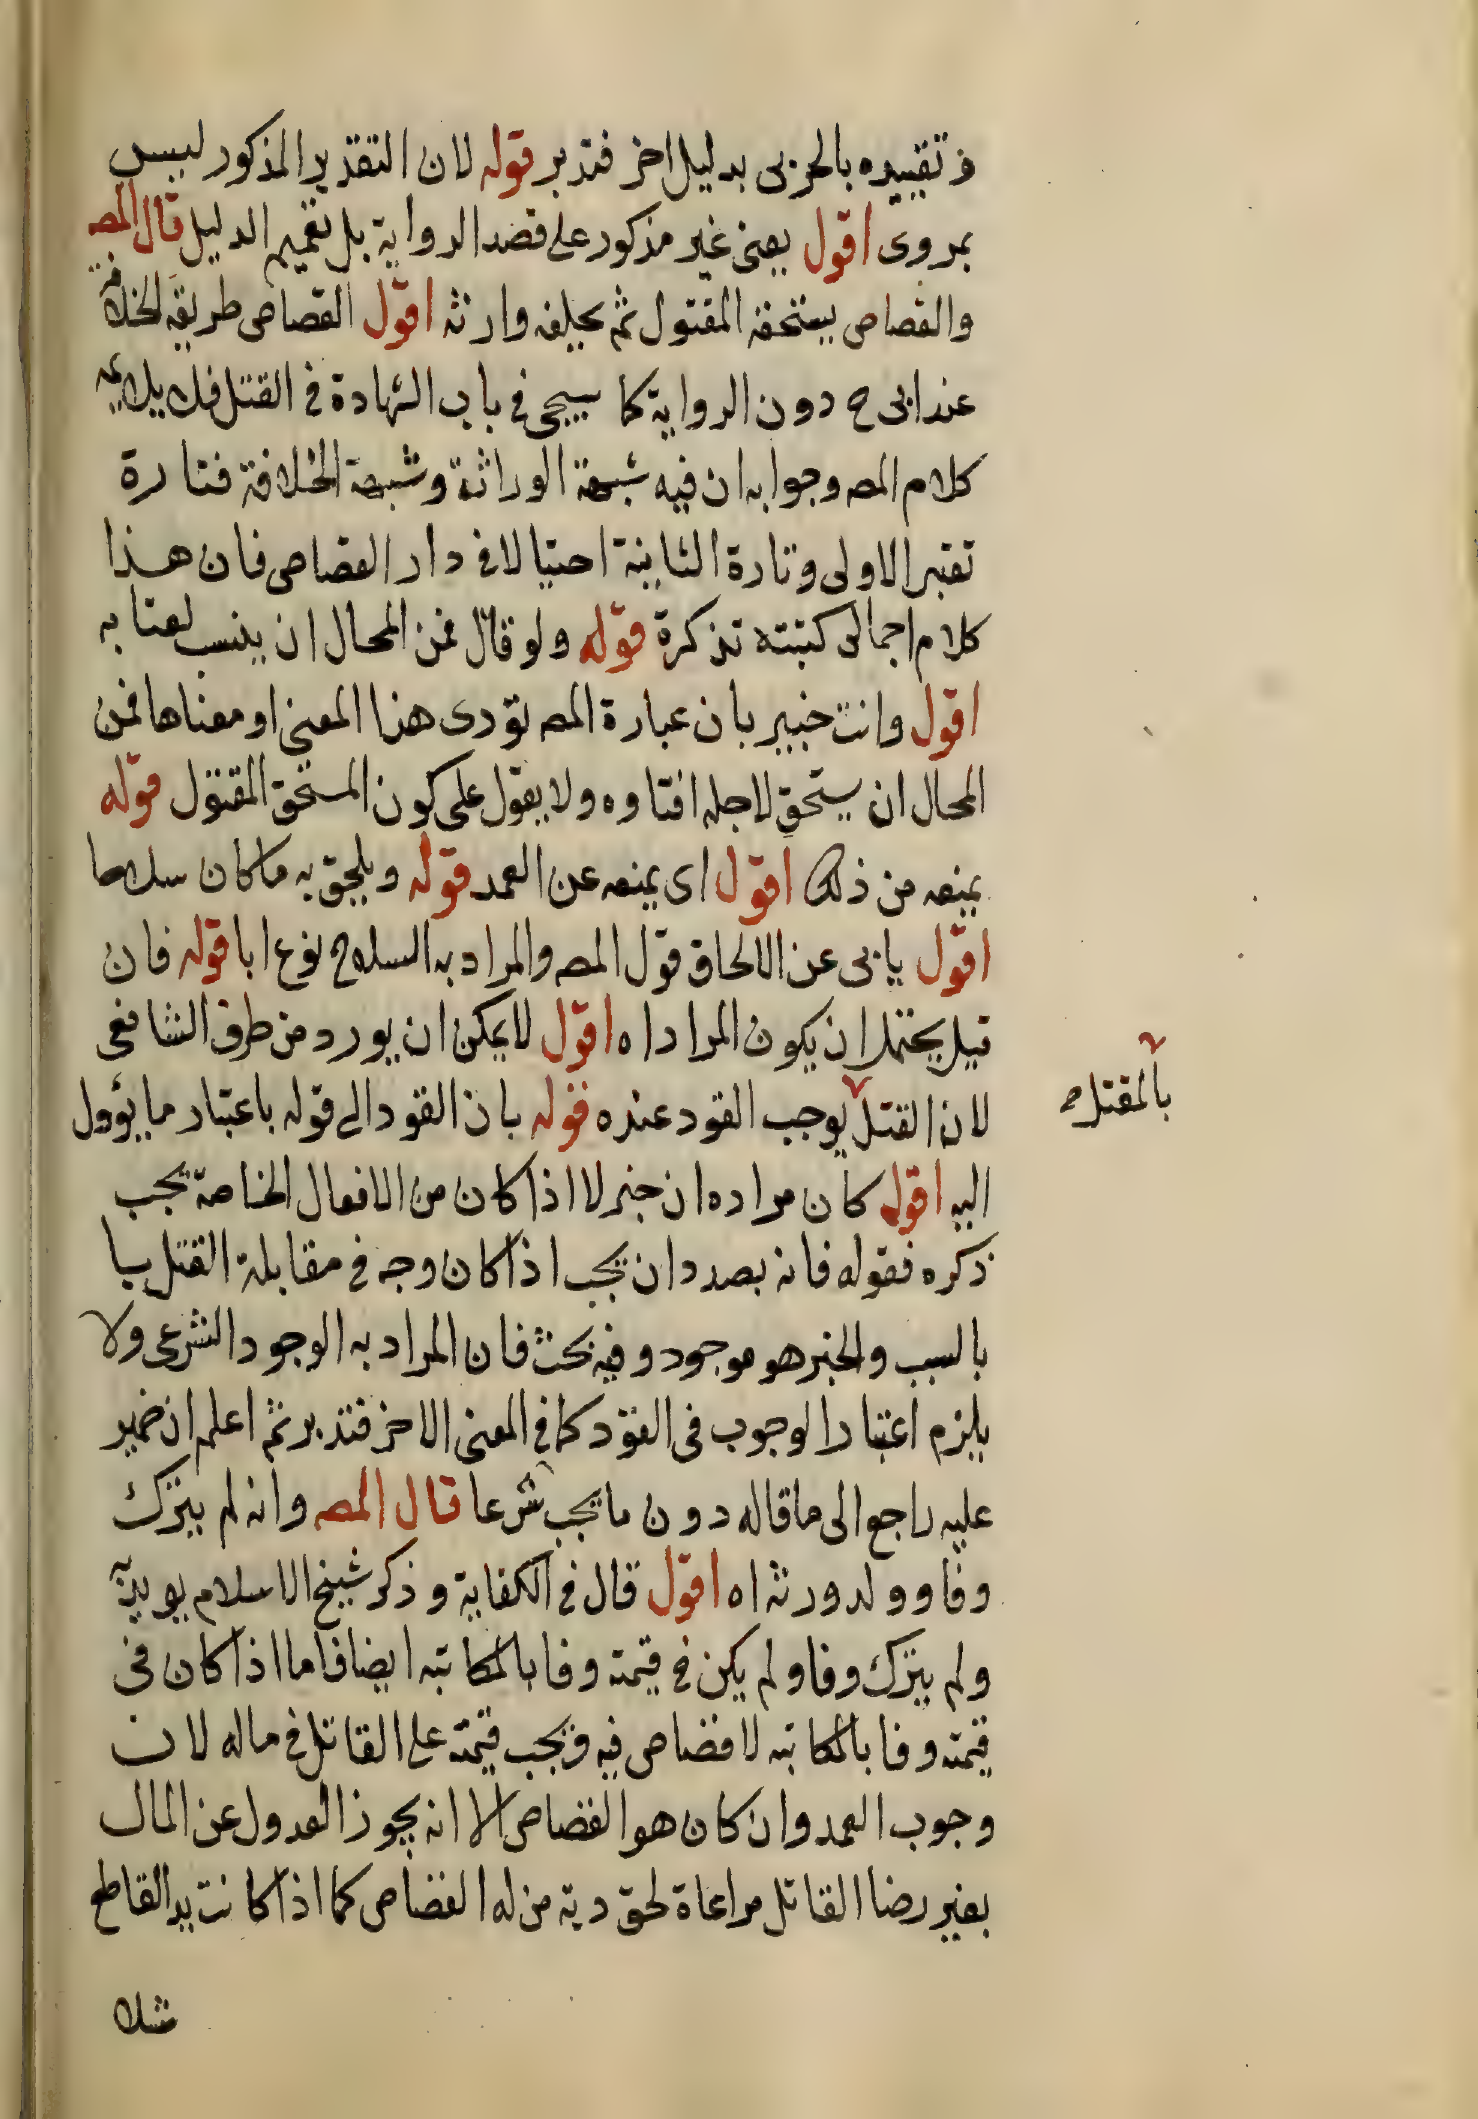 فى تقييده بالحربى بدليل اخر فتدبر قوله لان التقدير المذكور ليس
بمروى اقول يعنى غير مذكور على قصد الرواية بل تتميم الدليل قال المص
والقصاص يستحقه المقتول ثم يخلفه وارثه اقول القصاص طريقه الخلافة
عند ابى ح دون الرواية كما سيجى فى باب الشهادة فى القتل فلا يلايمه
كلام المص وجوابه ان فيه شبهة الوراثة وشبهة الخلافة فتارة
تعتبر الاولى وتارة الثانية احتيالا فى دار القصاص فان هذا
كلام اجمالى كتبته تذكرة قوله ولو قال فمن المحال ان ينسب لعتابه
اقول وانت خبير بان عبارة المص تودى هذا المعنى او معناها فمن
المحال ان يستحق لاجله افتاوه ولا يقول على كون المستحق المقتول قوله
يمنعه من ذلك اقول اى يمنعه عن العمد قوله ويلحق به ما كان سلاحا
اقول يابى عن الالحاق قول المص والمراد به السلاح نوع ابا قوله فان
قيل يحتمل ان يكون المراد اه اقول لا يمكن ان يورد من طرف الشافعى
لان القتل يوجب القود عنده قوله بان القود الى قوله باعتبار ما يؤول
بالمقتل صح
اليه اقول كان مراده ان خبر لا اذا كان من الافعال الخاصة يجب
ذكره فقوله فانه بصدد ان يجب اذا كان وجه فى مقابلة القتل بيا
بالسبب والخبر هو موجود وفيه بحث فان المراد به الوجود الشرعى ولا
يلزم اعتبار الوجوب فى القود كما فى المعنى الاخر فتدبر ثم اعلم ان ضمير
عليه راجع الى ما قاله دون ما يجب شرعا قال المص وانه لم يترك
وفا وولد ورثه اه اقول قال فى الكفاية وذكر شيخ الاسلام
ولم يترك وفا ولم يكن فى قيمته وفا بالمكاتبه ايضا فاما اذا كان فى
قيمته وفا بالمكاتبه لا قصاص فيه ويجب قيمته على القاتل فى ماله لان
وجوب العمد وان كان هو القصاص الا انه يجوز العدول عن المال
بغير رضا القاتل مراعاة لحق دية من له القصاص كما اذا كانت يد القاطع
شلا